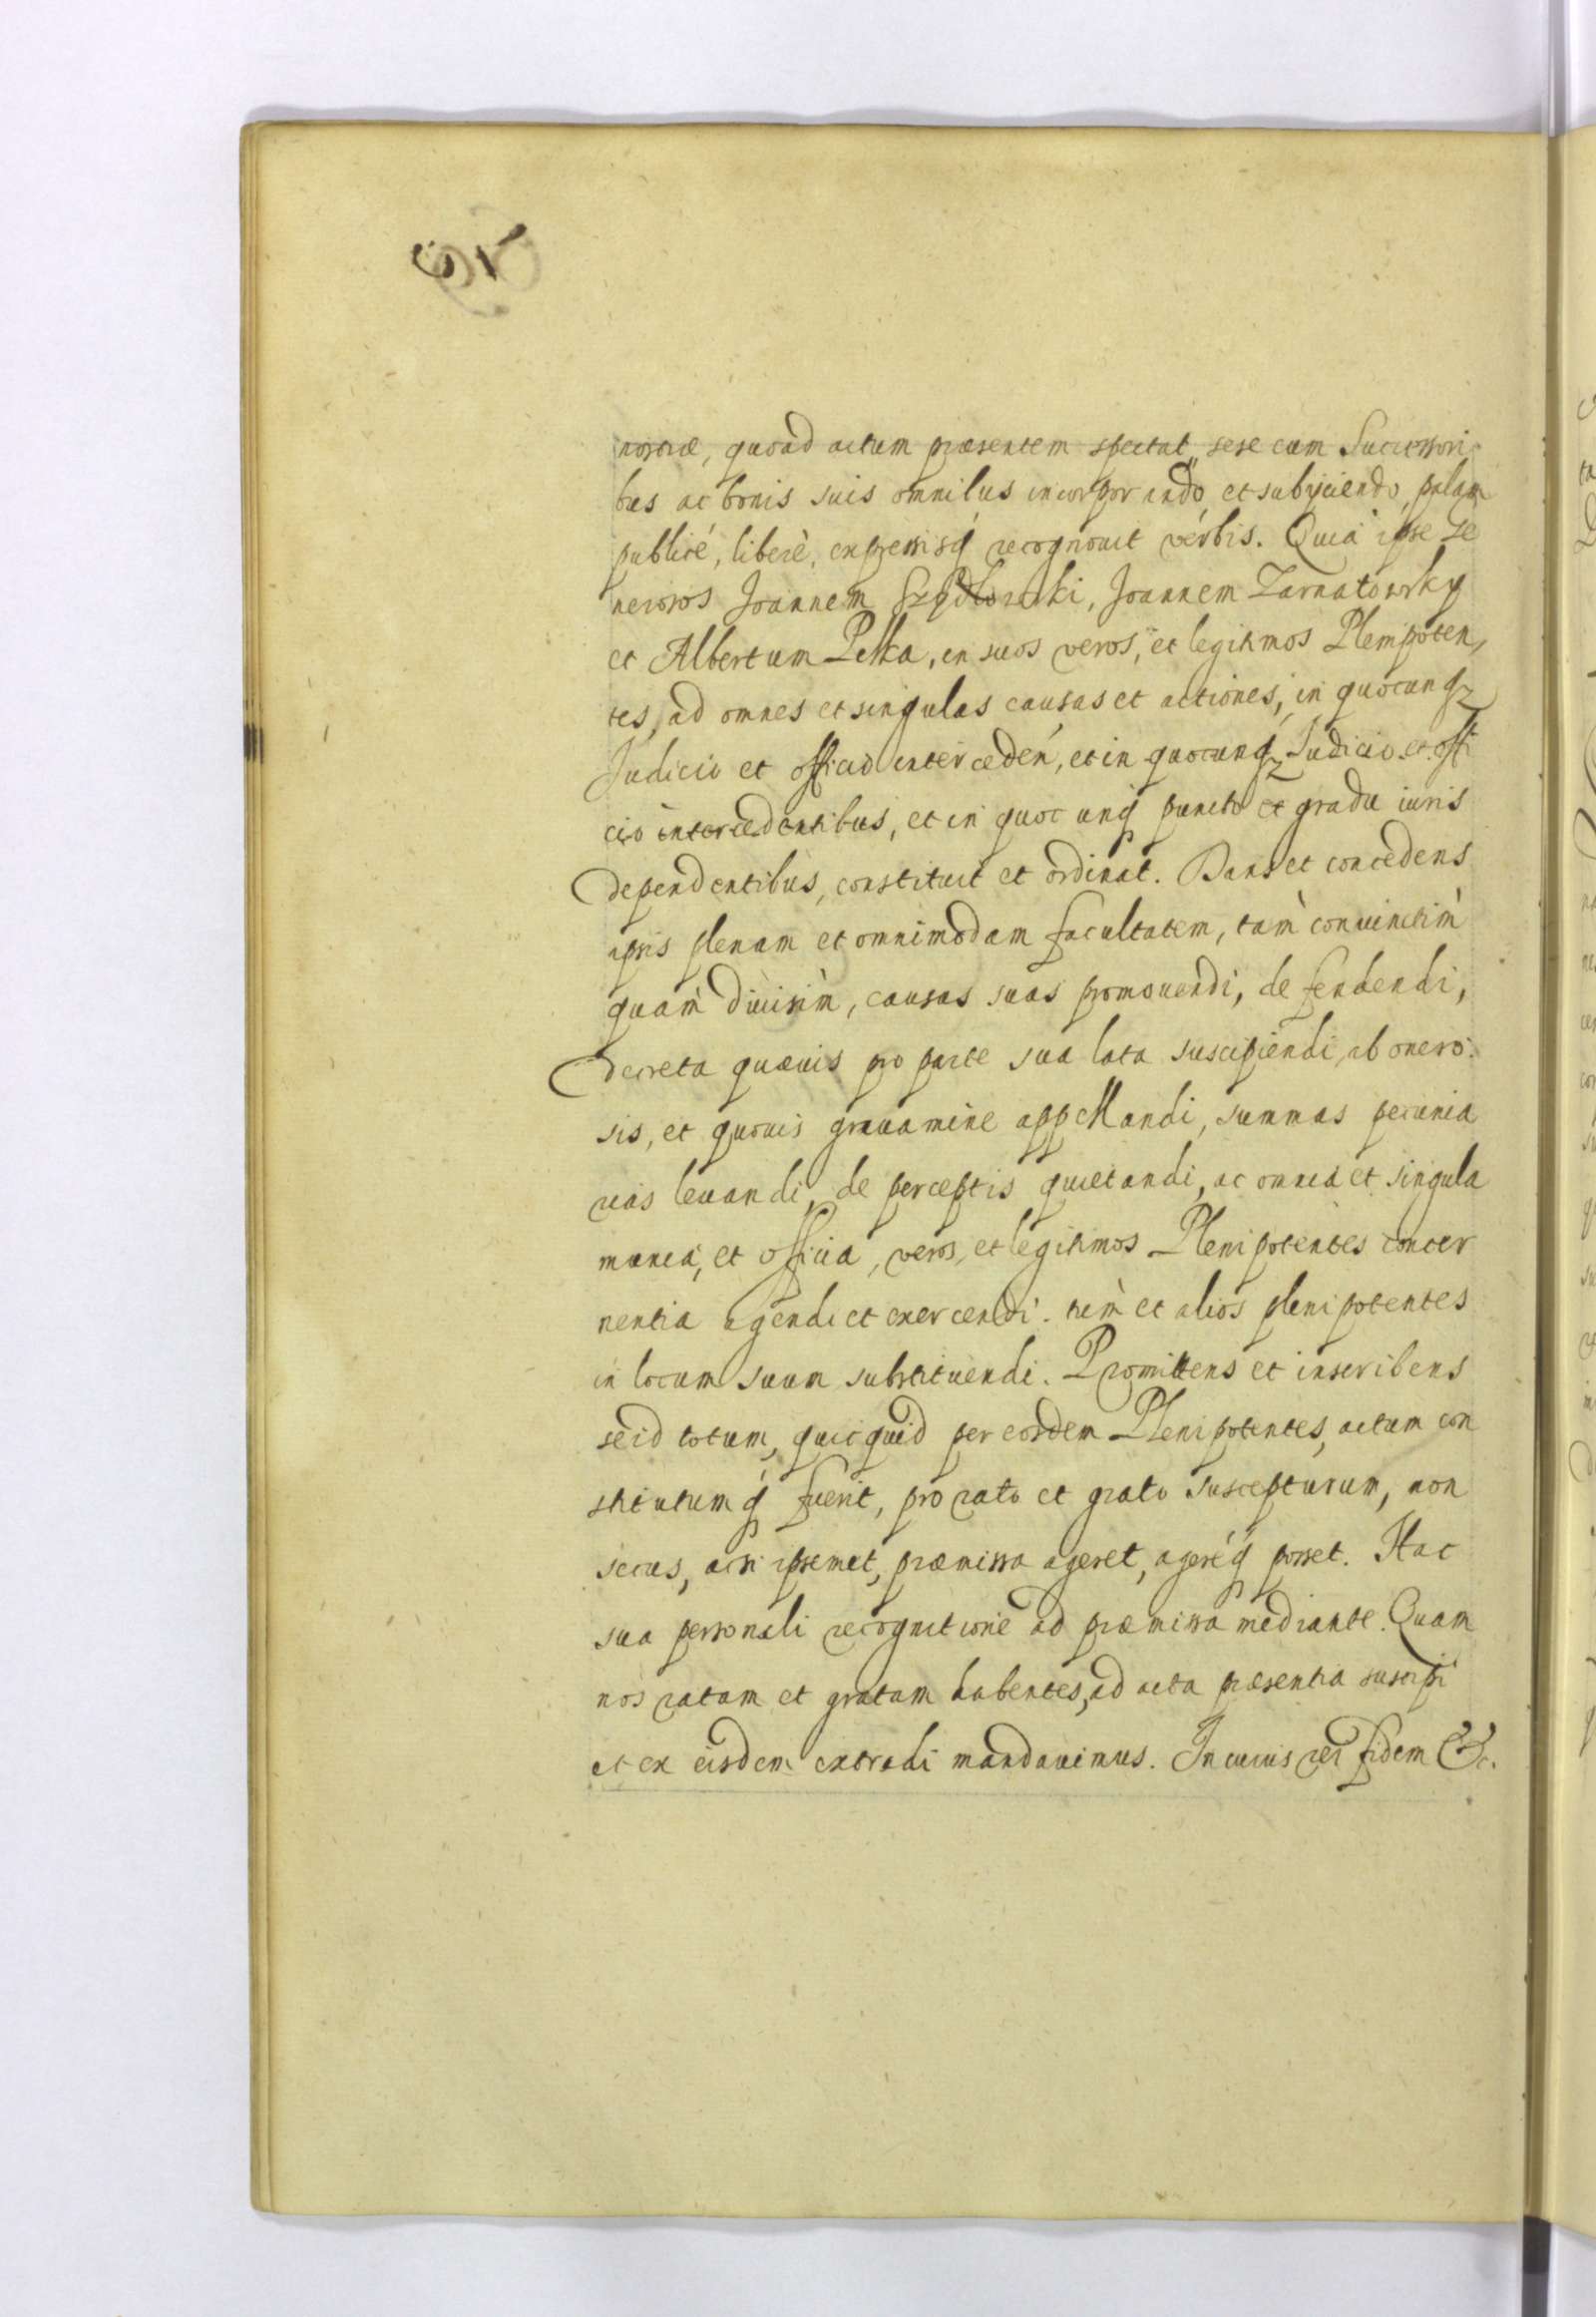 nostræ, quoad actum præsentem spectat, sese cum Successori
bus ac bonis suis omnibus incorporando, et subijciendo, palam
publicé, liberè, expressisq́ recognouit verbis. Quia ipse Ge
nerosos Joannem, Joannem Zarnatowsky
et Albertum Pełka, in suos veros, et legitimos Plenipoten,
tes, ad omnes et singulas causas et actiones, in quocunqz
Judicio et officio interceden, et in quocunqz Judicio et offi
cio intercedentibus, et in quocunq́ puncto et gradu iuris
dependentibus, constituit et ordinat. Dans et concedens
ipsis plenam et omnimodam facultatem, tàm coniunctìm
quàm diuisìm, causas suas promouendi, defendendi,
decreta quæuis pro parte sua lata suscipiendi, ab onero
sis, et quouis grauamine appellandi, summas pecunia
rias leuandi, de perceptis quietandi, ac omnia et singula
munia, et officia, veros, et legitimos Plenipotentes concer
nentia agendi et exercendi. tùm et alios plenipotentes
in locum suum substituendi. Promittens et inscribens
se id totum, quicquid per eosdem Plenipotentes, actum con
stitutumq́ fuerit, pro rato et grato suscepturum, non
secus, acsi ipsemet, præmissa ageret, agereq́ posset. Hac
sua personali recognitione ad præmissa mediante. Quam
nos ratam et gratam habentes, ad acta præsentia suscipi
et ex eisdem extradi mandauimus. In cuius rei fidem &c.